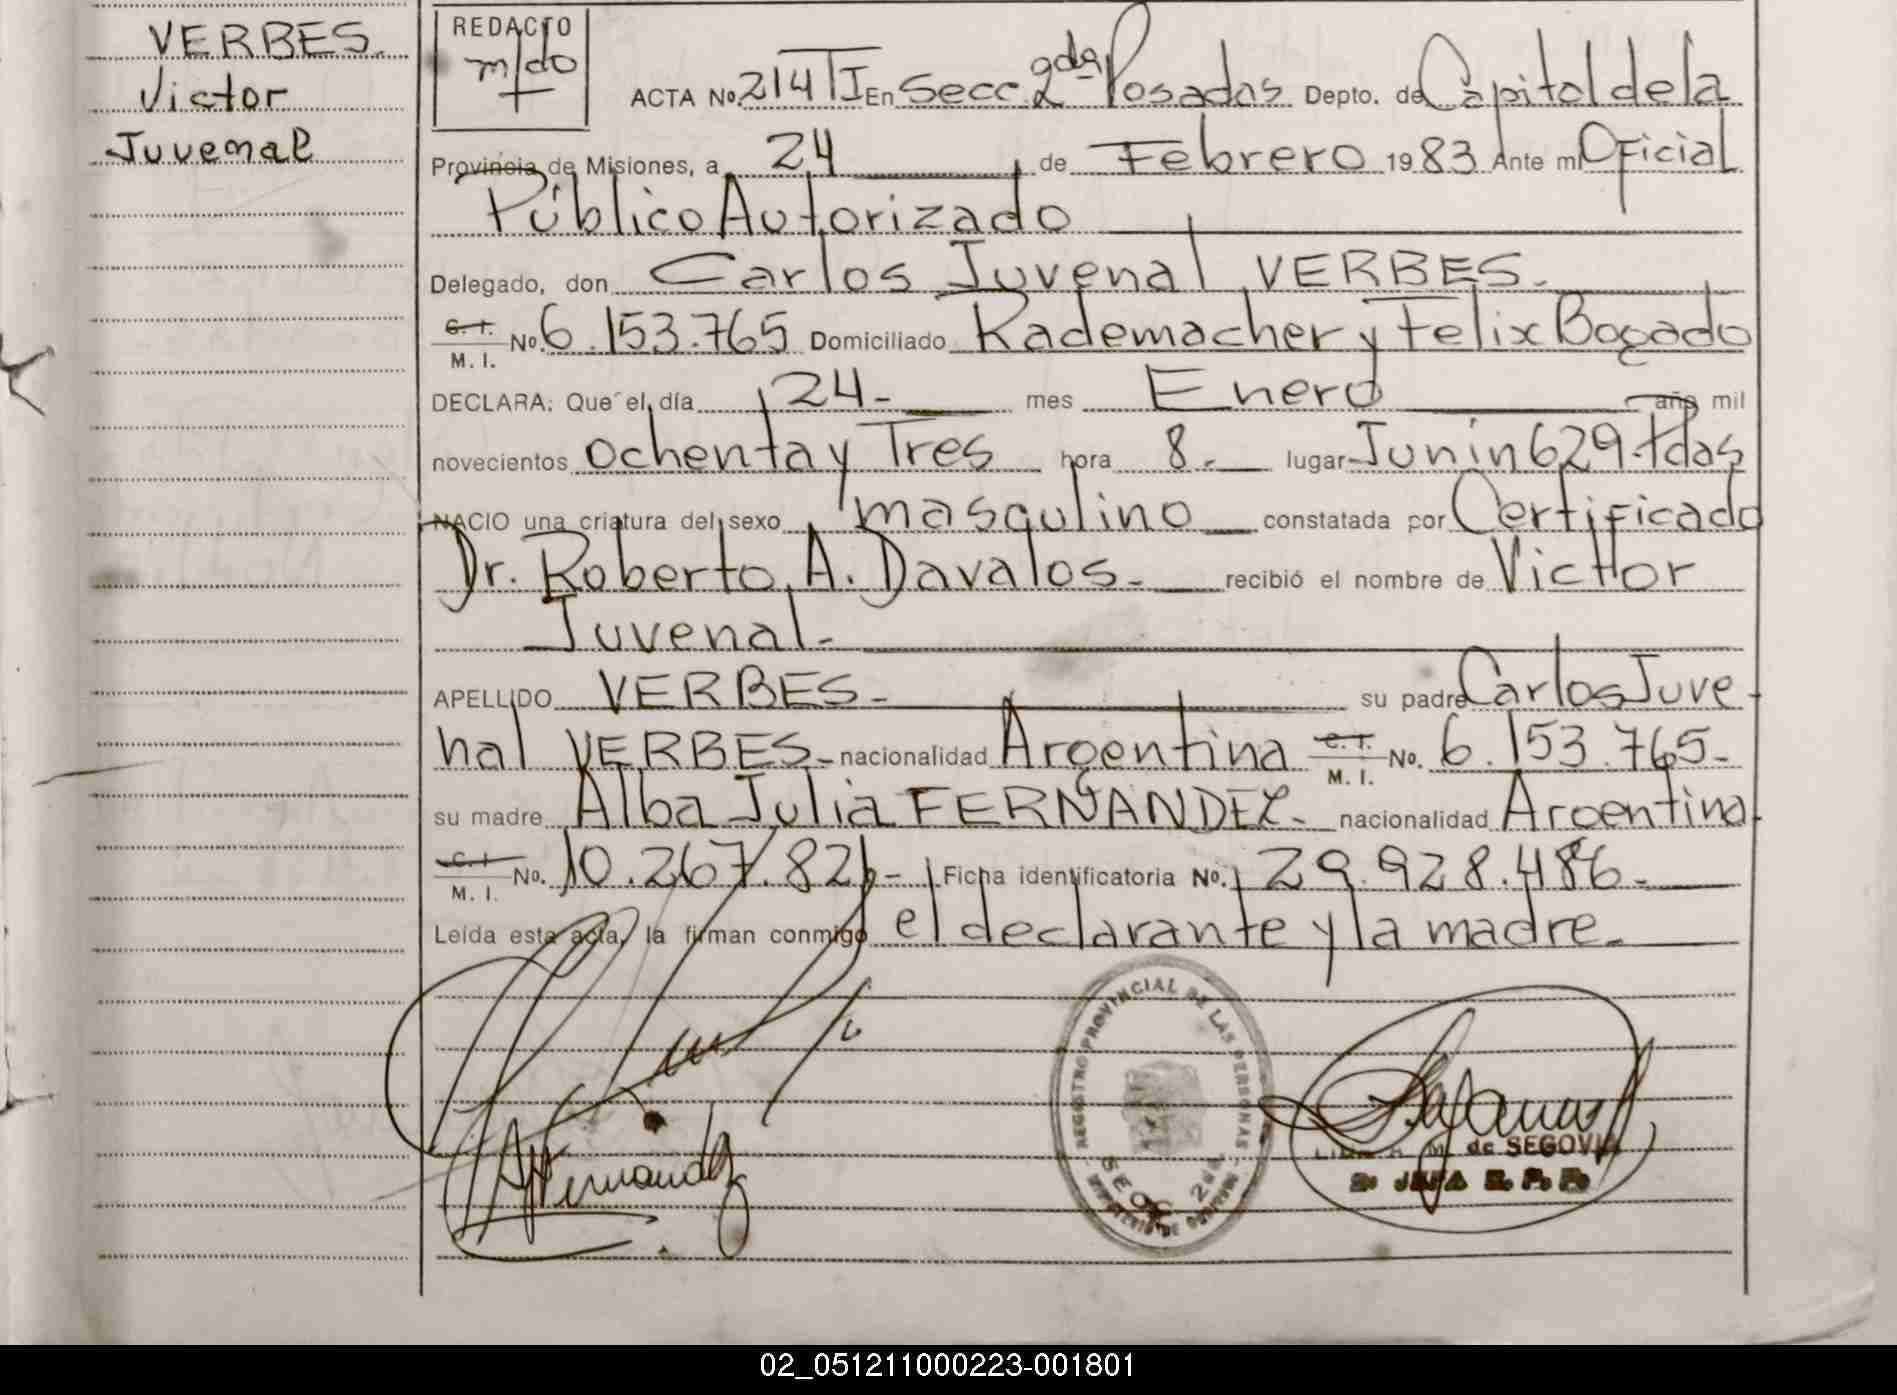 VERBES.
Victor
Juvenal
REDACTO
ACTA No. 214 TI En Secc. 2da Posadas Depto. de Capital de la
Provincia de Misiones, a 24 de Febrero 1983 Ante mi Oficial
Público Autorizado
Delegado, don Carlos Juvenal VERBES.
C. I. M. I. No. 6.153.765 Domiciliado Rademacher y Felix Bogado
DECLARA: Que el día 24- mes Enero año mil
novecientos ochenta y Tres hora 8.- lugar Junin 629. Pdas
NACIO una criatura del sexo masculino constatada por Certificado
Dr. Roberto A. Davalos- recibió el nombre de Victor
Juvenal-
APELLIDO VERBES- su padre Carlos Juve-
nal VERBES- nacionalidad Argentina C. I. M. I. No. 6.153.765-
su madre Alba Julia FERNANDEZ- nacionalidad Argentina
C. I. M. I. No. 10.267.826- Ficha identificatoria No. 29.928.486-
Leída esta acta, la firman conmigo el declarante y la madre.
REGISTRO PROVINCIAL DE LAS PERSONAS
SECC 2da
AFernandez
M. de SEGOVIA
2a JEFA R. P. P.
02_051211000223-001801